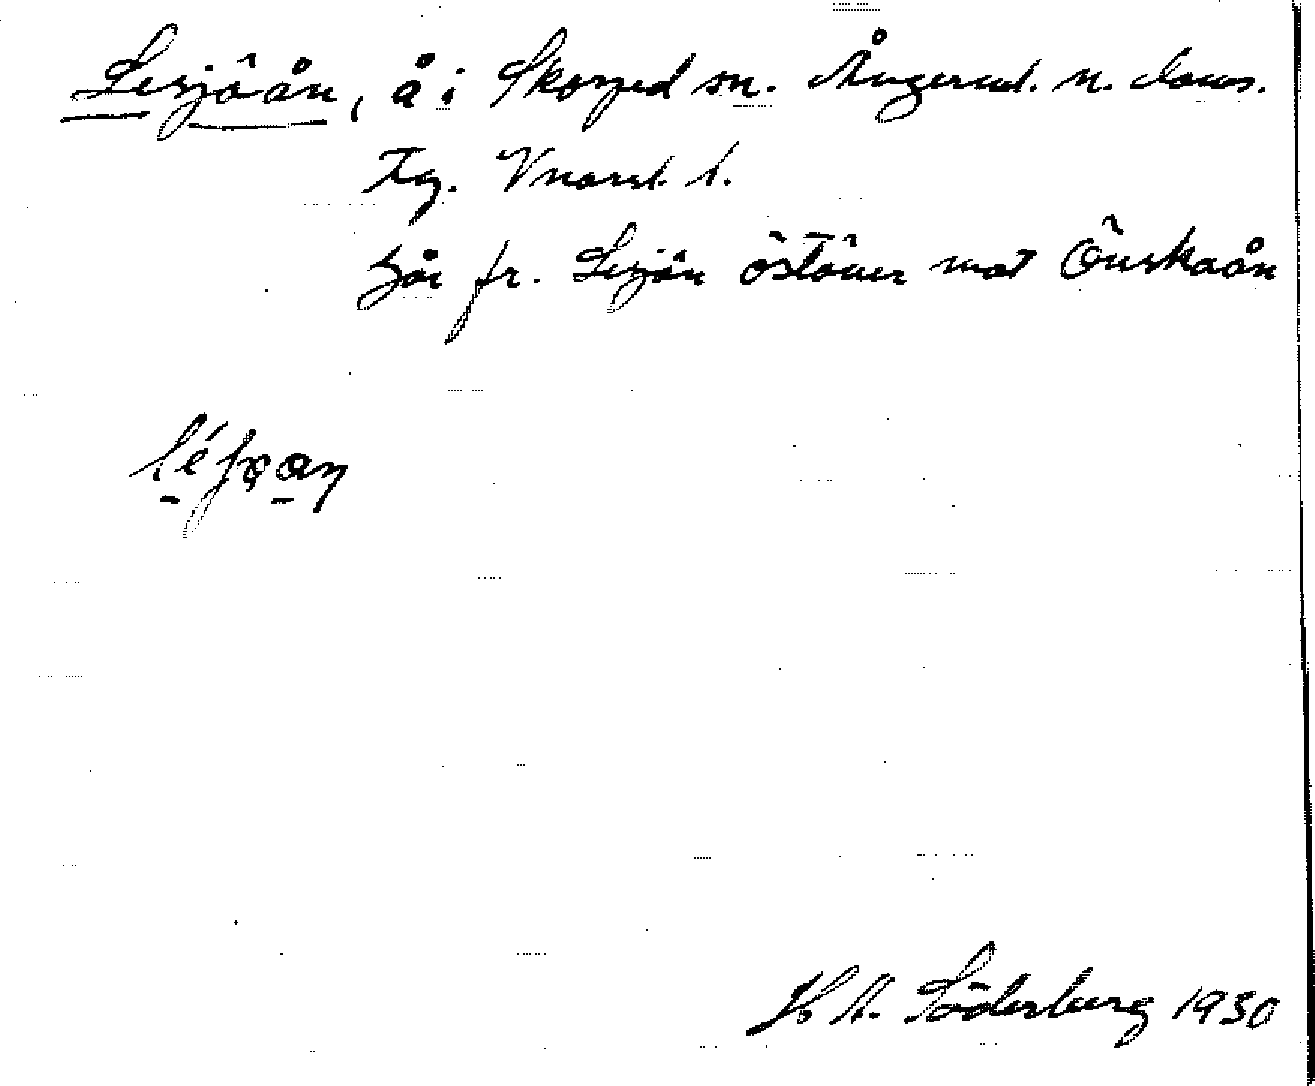 Lesjöån, å i Skorped sn. Ångerml. n. doms.
Kg. V narsl. 1.
Går fr. Lesjön österut mot Önskaån
H. A. Söderberg 1930